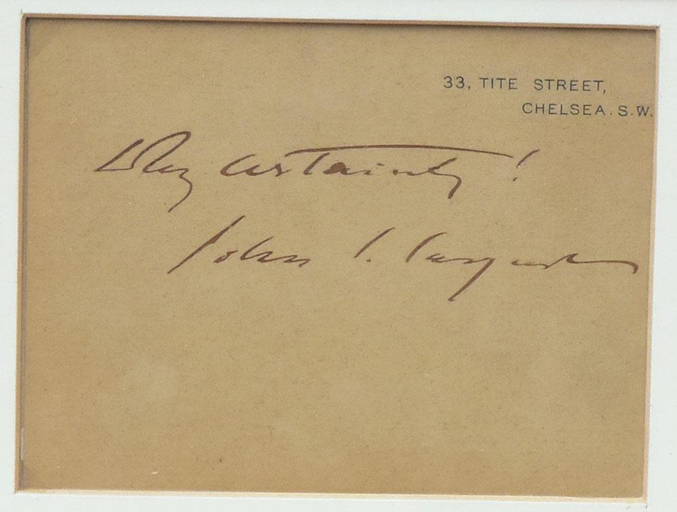 33, TITE STREET,
CHELSEA. S.W.
Why certainly!
John S. Sargent